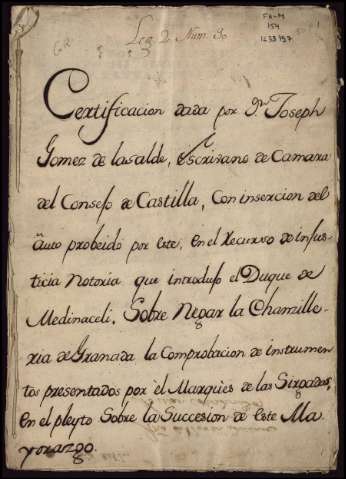 Leg. 2. Num. 30
FA-M
154
1
Certificacion dada por Dn. Joseph
Gomez de Lasalde, escrivano de Camara
del Consejo de Castilla, con insercion del
auto probeido por este, en el Recurso de injus-
ticia Notoria que introdujo el Duque de
Medinaceli, Sobre Negar la Chanzille-
ria de Granada la Comprobacion de instrumen-
tos presentados por el Marques de las Sirgadas,
en el pleyto Sobre la Succesion de este Ma
yorazgo.